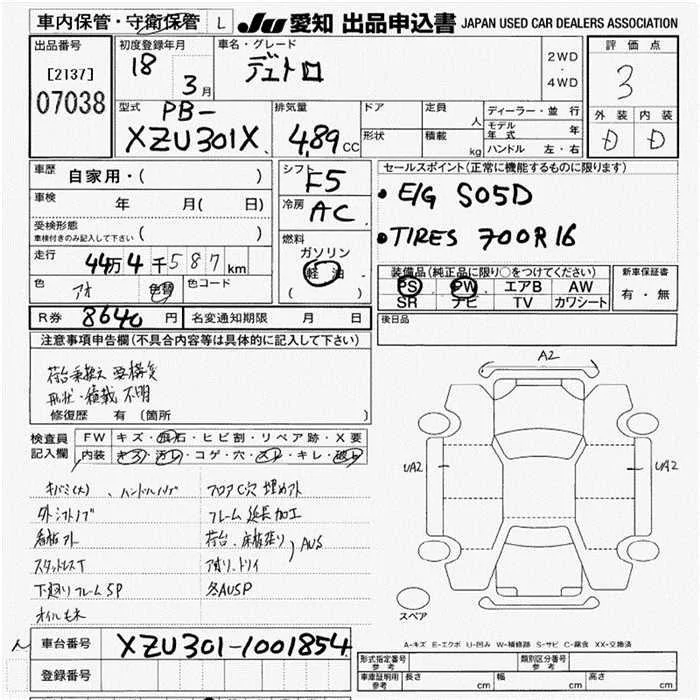 車内保管・守衛保管 L JU 愛知 出品申込書 JAPAN USED CAR DEALERS ASSOCIATION
出品番号
[2137]
07038
初度登録年月
18
3月
車名・グレード
デュトロ
2WD
・
4WD
評価点
3
外装 内装
D D
型式
PB-
XZU301X
排気量
4.89 CC
ドア
形状
定員 人
積載 kg
ディーラー・並行
モデル年式 年
ハンドル 左・右
車歴 自家用・( )
車検 年 月( 日)
受検形態
車検付きのみ記入して下さい( )
走行 44万4千587km
色 アオ 色替 色コード
シフト F5
冷房 AC
燃料
ガソリン
軽油
( )
セールスポイント(正常に機能するものに限ります)
・E/G S05D
・TIRES 700R16
装備品(純正品に限り○をつけてください)
PS PW エアB AW
SR ナビ TV カワシート
新車保証書
有・無
後日品
R券 8640円 名変通知期限 月 日
注意事項申告欄(不具合内容等は具体的に記入して下さい)
形状・積載 不明
修復歴 有(箇所 )
検査員記入欄
FW キズ・飛石・ヒビ割・リペア跡・X要
内装 キズ・汚レ・コゲ・穴・スレ・キレ・破レ
キバミ(大)、ハンドル
フロアC穴 埋めアト
外シフトノブ
フレーム 延長加工
看板アト
荷台、床板張り
AUS
スタッドレスT
下廻りフレームSP
オイルモレ
A2
UA2
UA2
スペア
A-キズ E-エクボ U-凹み W-補修跡 S-サビ C-腐食 XX-交換済
車台番号 XZU301-1001854
登録番号
形式指定番号
参考
類別区分番号
参考
車庫証明用
参考
長さ cm 幅 cm 高さ cm